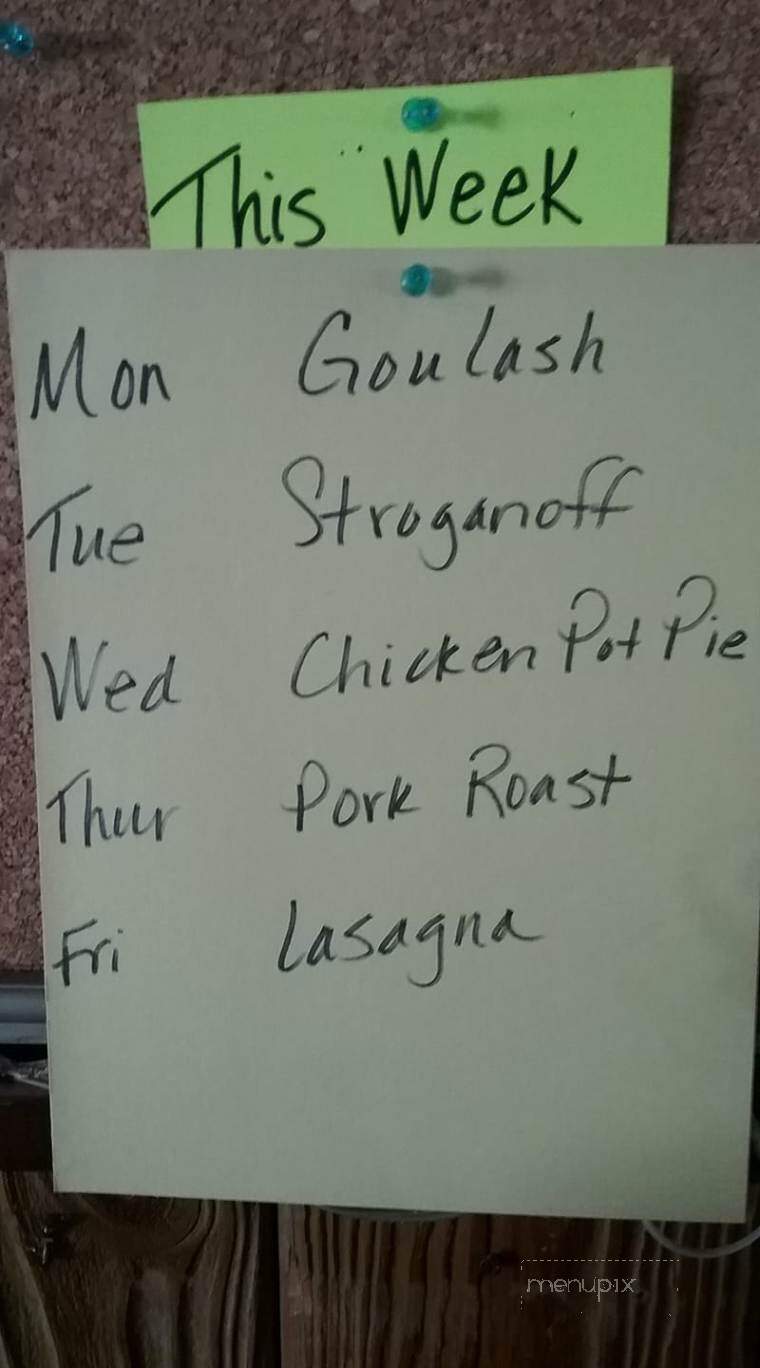 This Week
Mon Goulash
Tue Stroganoff
Wed Chicken Pot Pie
Thur Pork Roast
Fri Lasagna
menupix